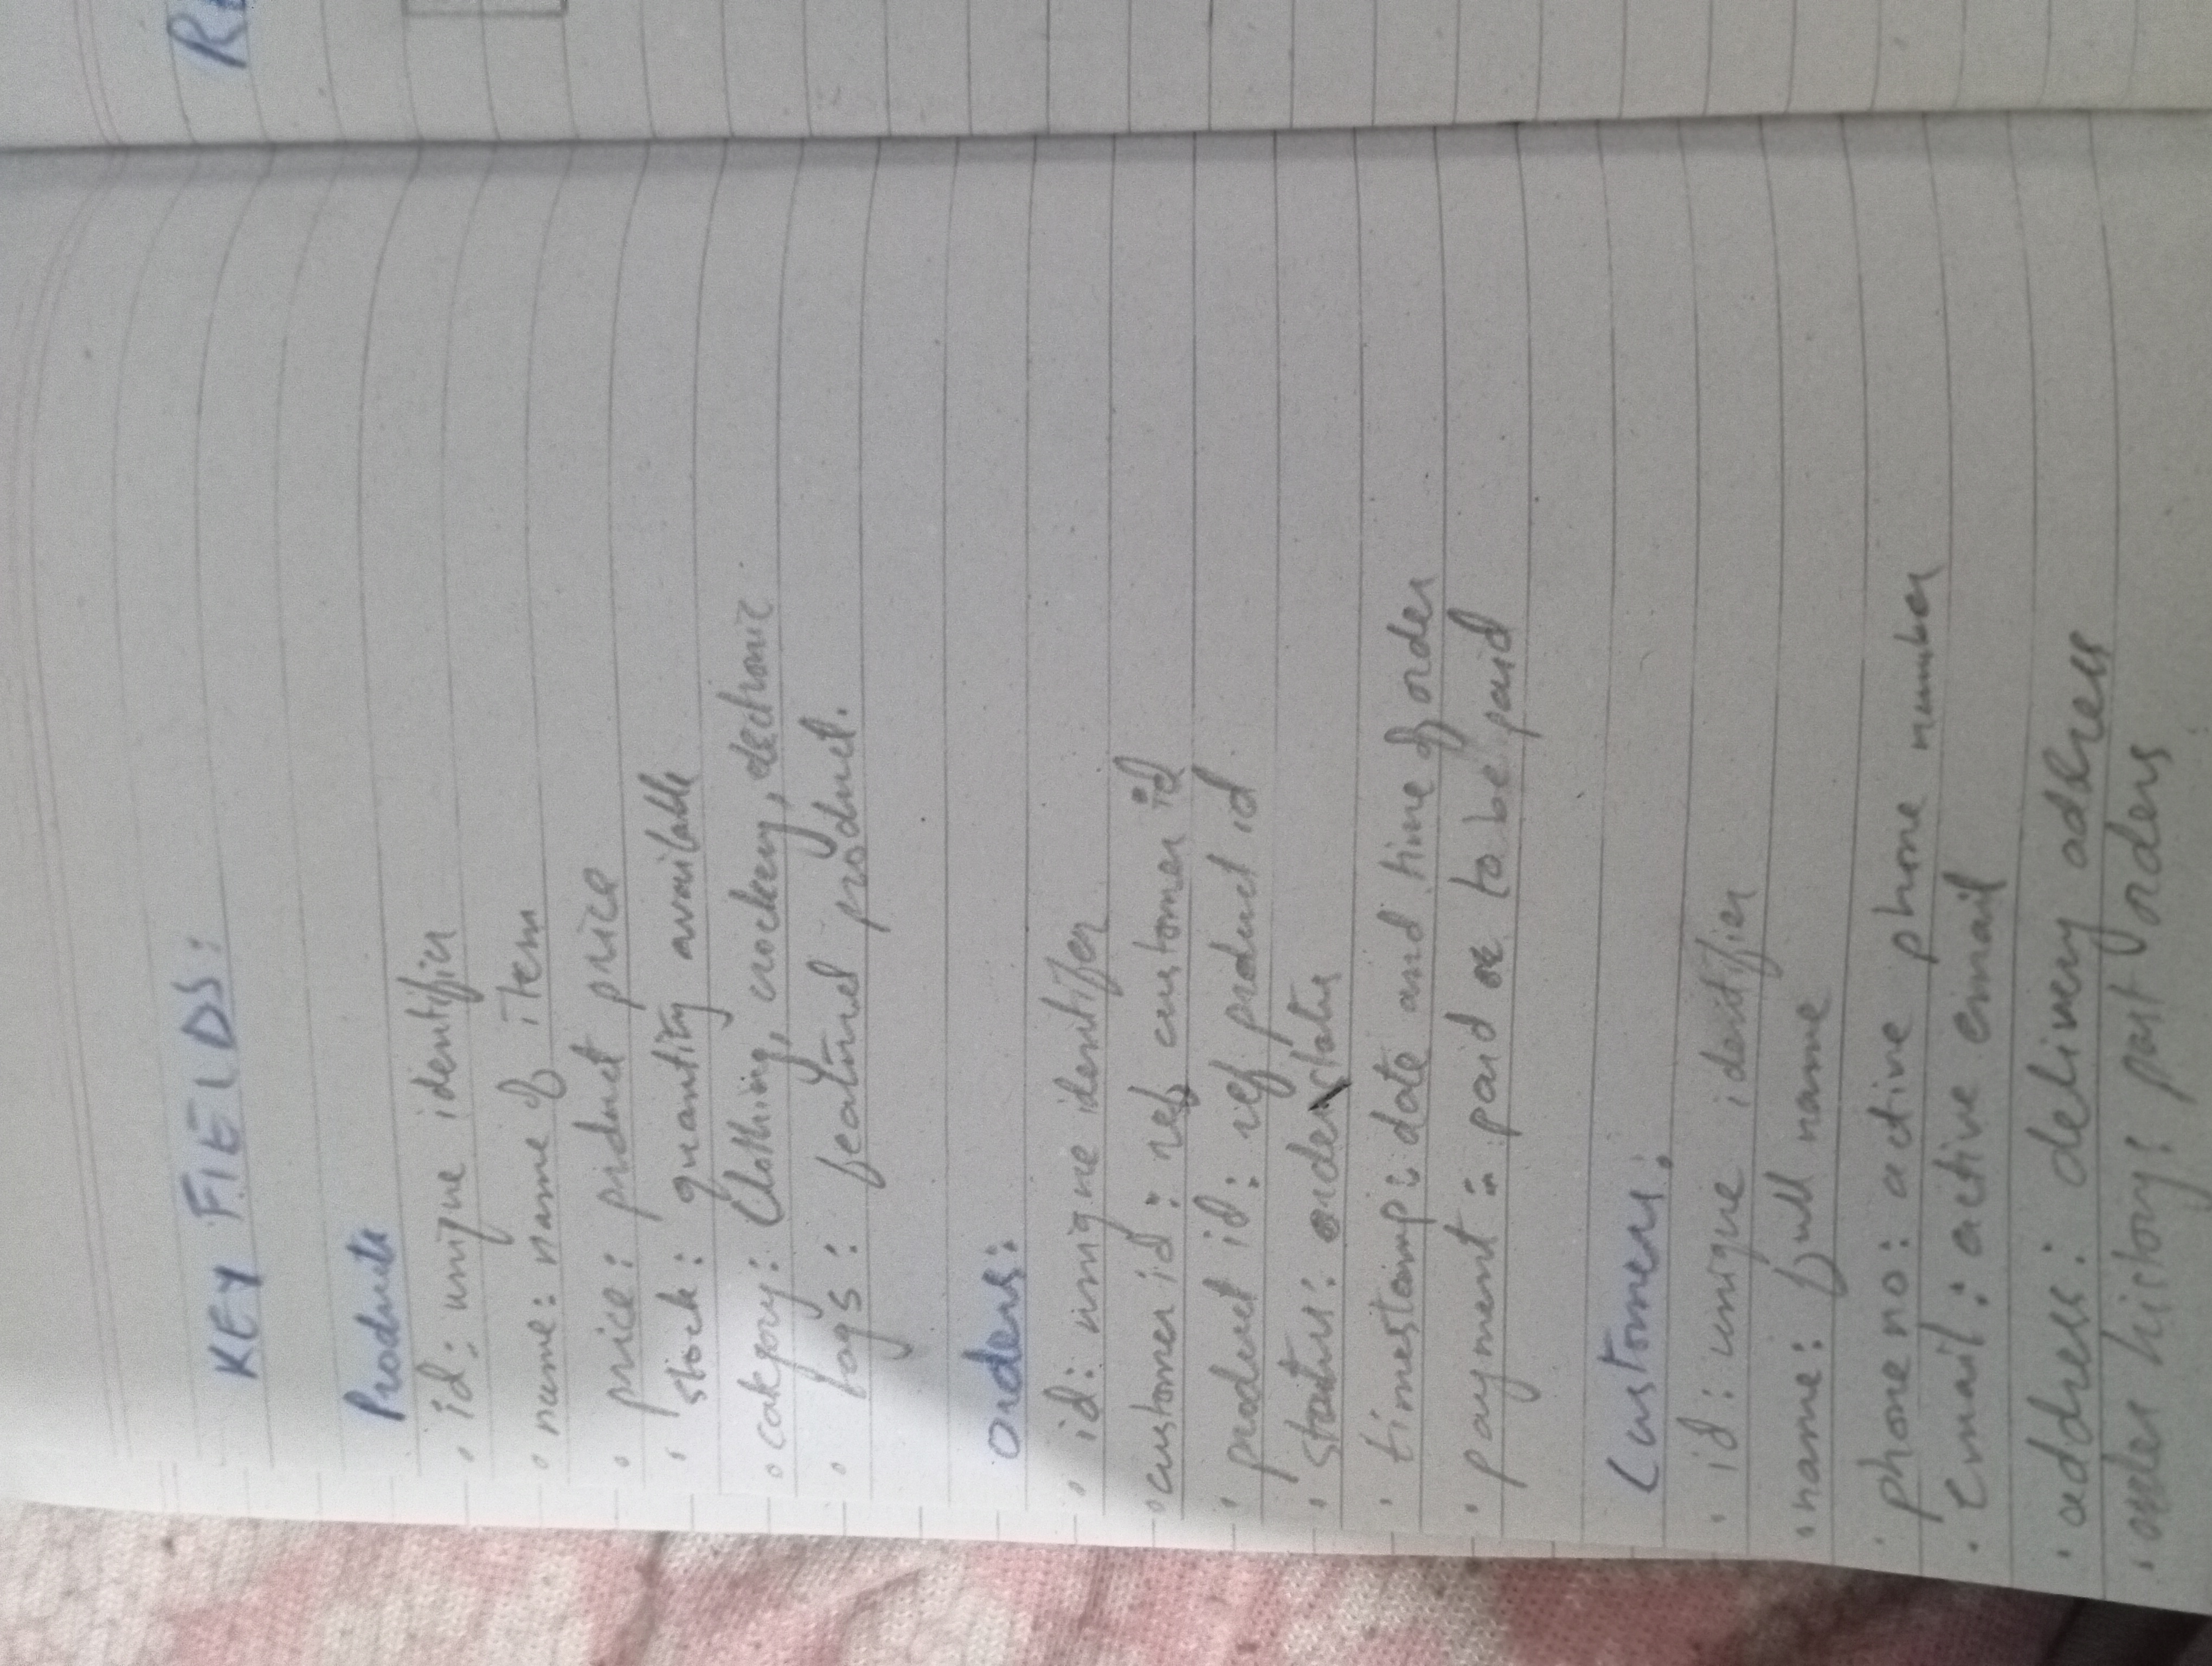 KEY FIELDS:
Products
• id: unique identifier
• name: name of item
• price: product price
• stock: quantity available
• category: Clothing, crockery, electronic
• tags: featured product.
Orders:
• id: unique identifer
• customer id: ref customer id
• product id: ref product id
• status: order status
• timestamp: date and time of order
• payment: paid or to be paid
Customers:
• id: unique identifier
• name: full name
• phone no: active phone number
• email: active email
• address: delivery address
• order history: past orders